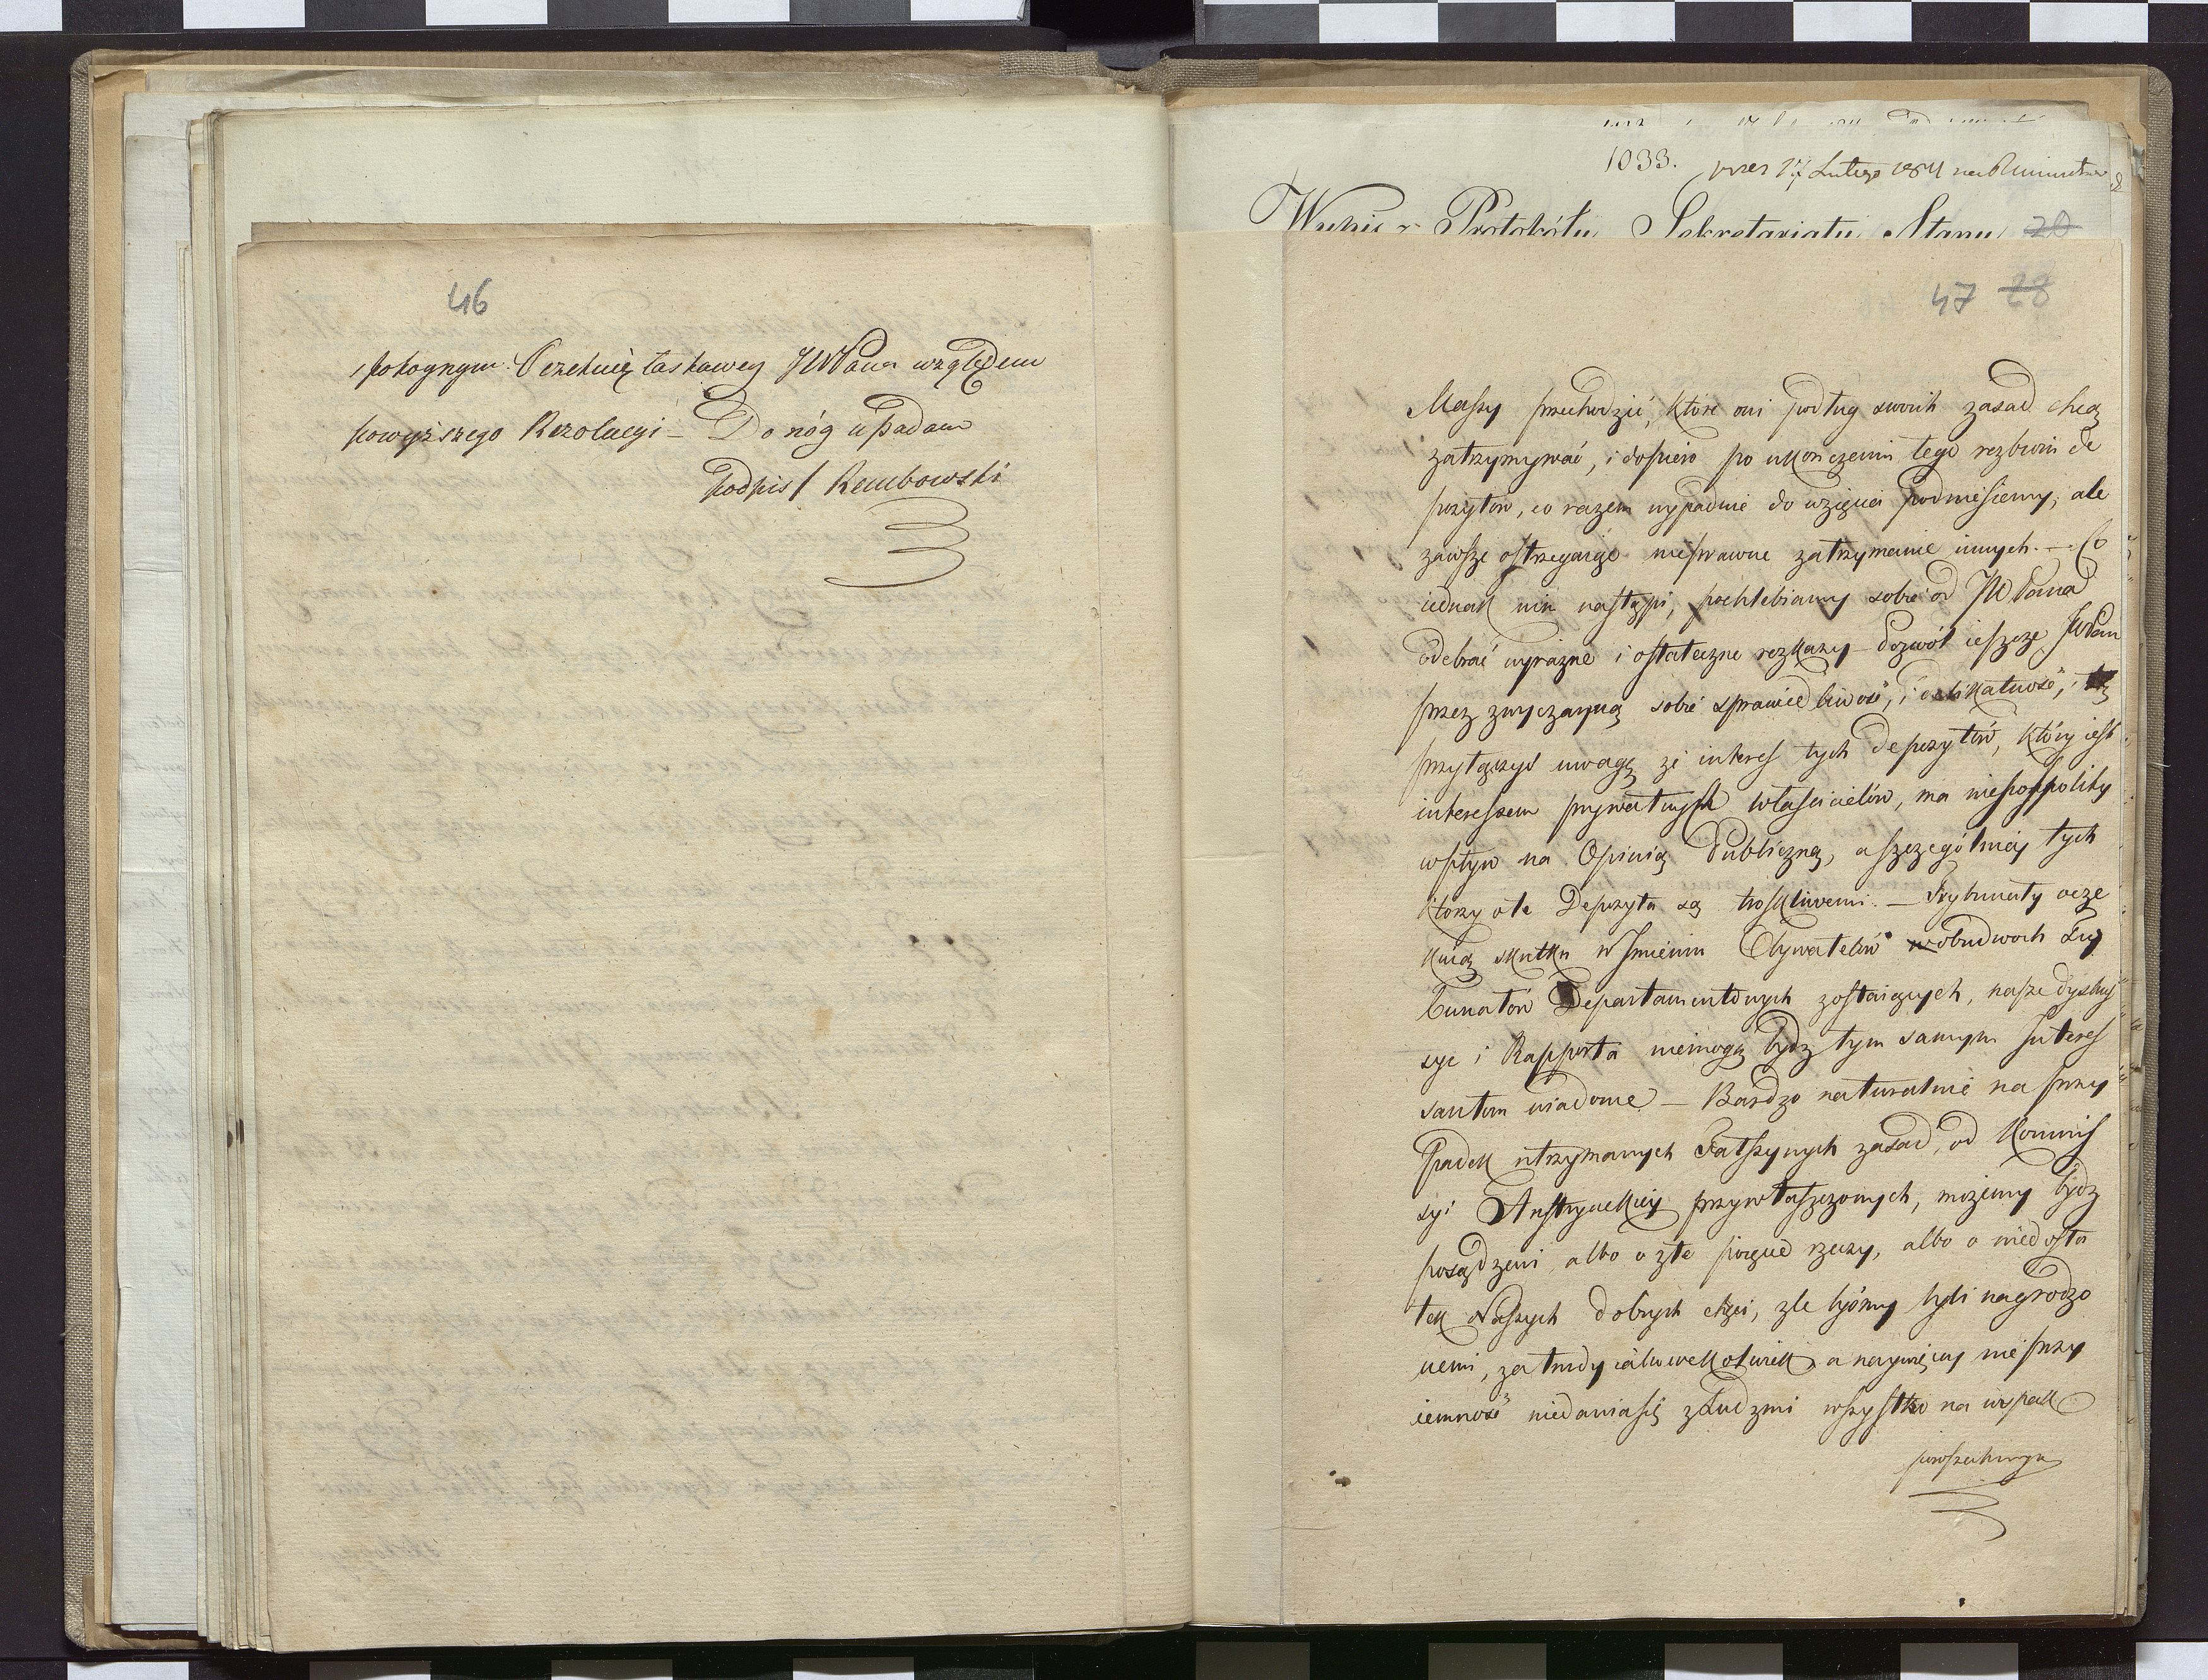 46
spokoynym. Oczekuię łaskawey JWPana względem
powyższego Rezolucyi – Do nóg upadam
podpis/ Rembowski
1033. przez 17 Lutego
Wypis z Protokółu Sekretariatu Stanu 20
47 28
Massy przechodzić, które oni podług swoich zasad chcą
zatrzymywać, i dopiero po ukończeniu tego rozbioru de
pozytów, co razem wypadnie do wzięcia podniesiemy, ale
zawsze ostrzegaiąc nieprawne zatrzymanie innych. – Co
iednak nim nastąpi, pochlebiamy sobie od JWPana
odebrać wyraźne i ostateczne rozkazy – dozwól ieszcze JWPan
przez zwyczayną sobie sprawiedliwość, i delikatność,
przyłączyć uwagę że interes tych depozytów, który iest
interessem prywatnych właścicielów, ma niepospolity
wpływ na Opinią Publiczną, a szczególniey tych
ktorzy o te Depozyta są troskliwemi. – Trybunały ocze
kuią skutku w Imieniu Obywatelów w obudwoch Try
bunałów Departamentowych zostaiących, nasze dyskus
sye i Rapporta niemogą bydź tym samym Interes
santom wiadome – Bardzo naturalnie na przy
padek utrzymanych Fałszywych zasad, od Kommis
syi Austryackiey przywłaszczonych, możemy bydź
posądzeni albo o złe poięcie rzeczy, albo o niedosta
tek Naszych dobrych chęci, źle byśmy byli nagrodzo
nemi, za trudy iakowekolwiek, a naywięcey nieprzy
iemność niedawia się z Ludźmi wszystko na wspak